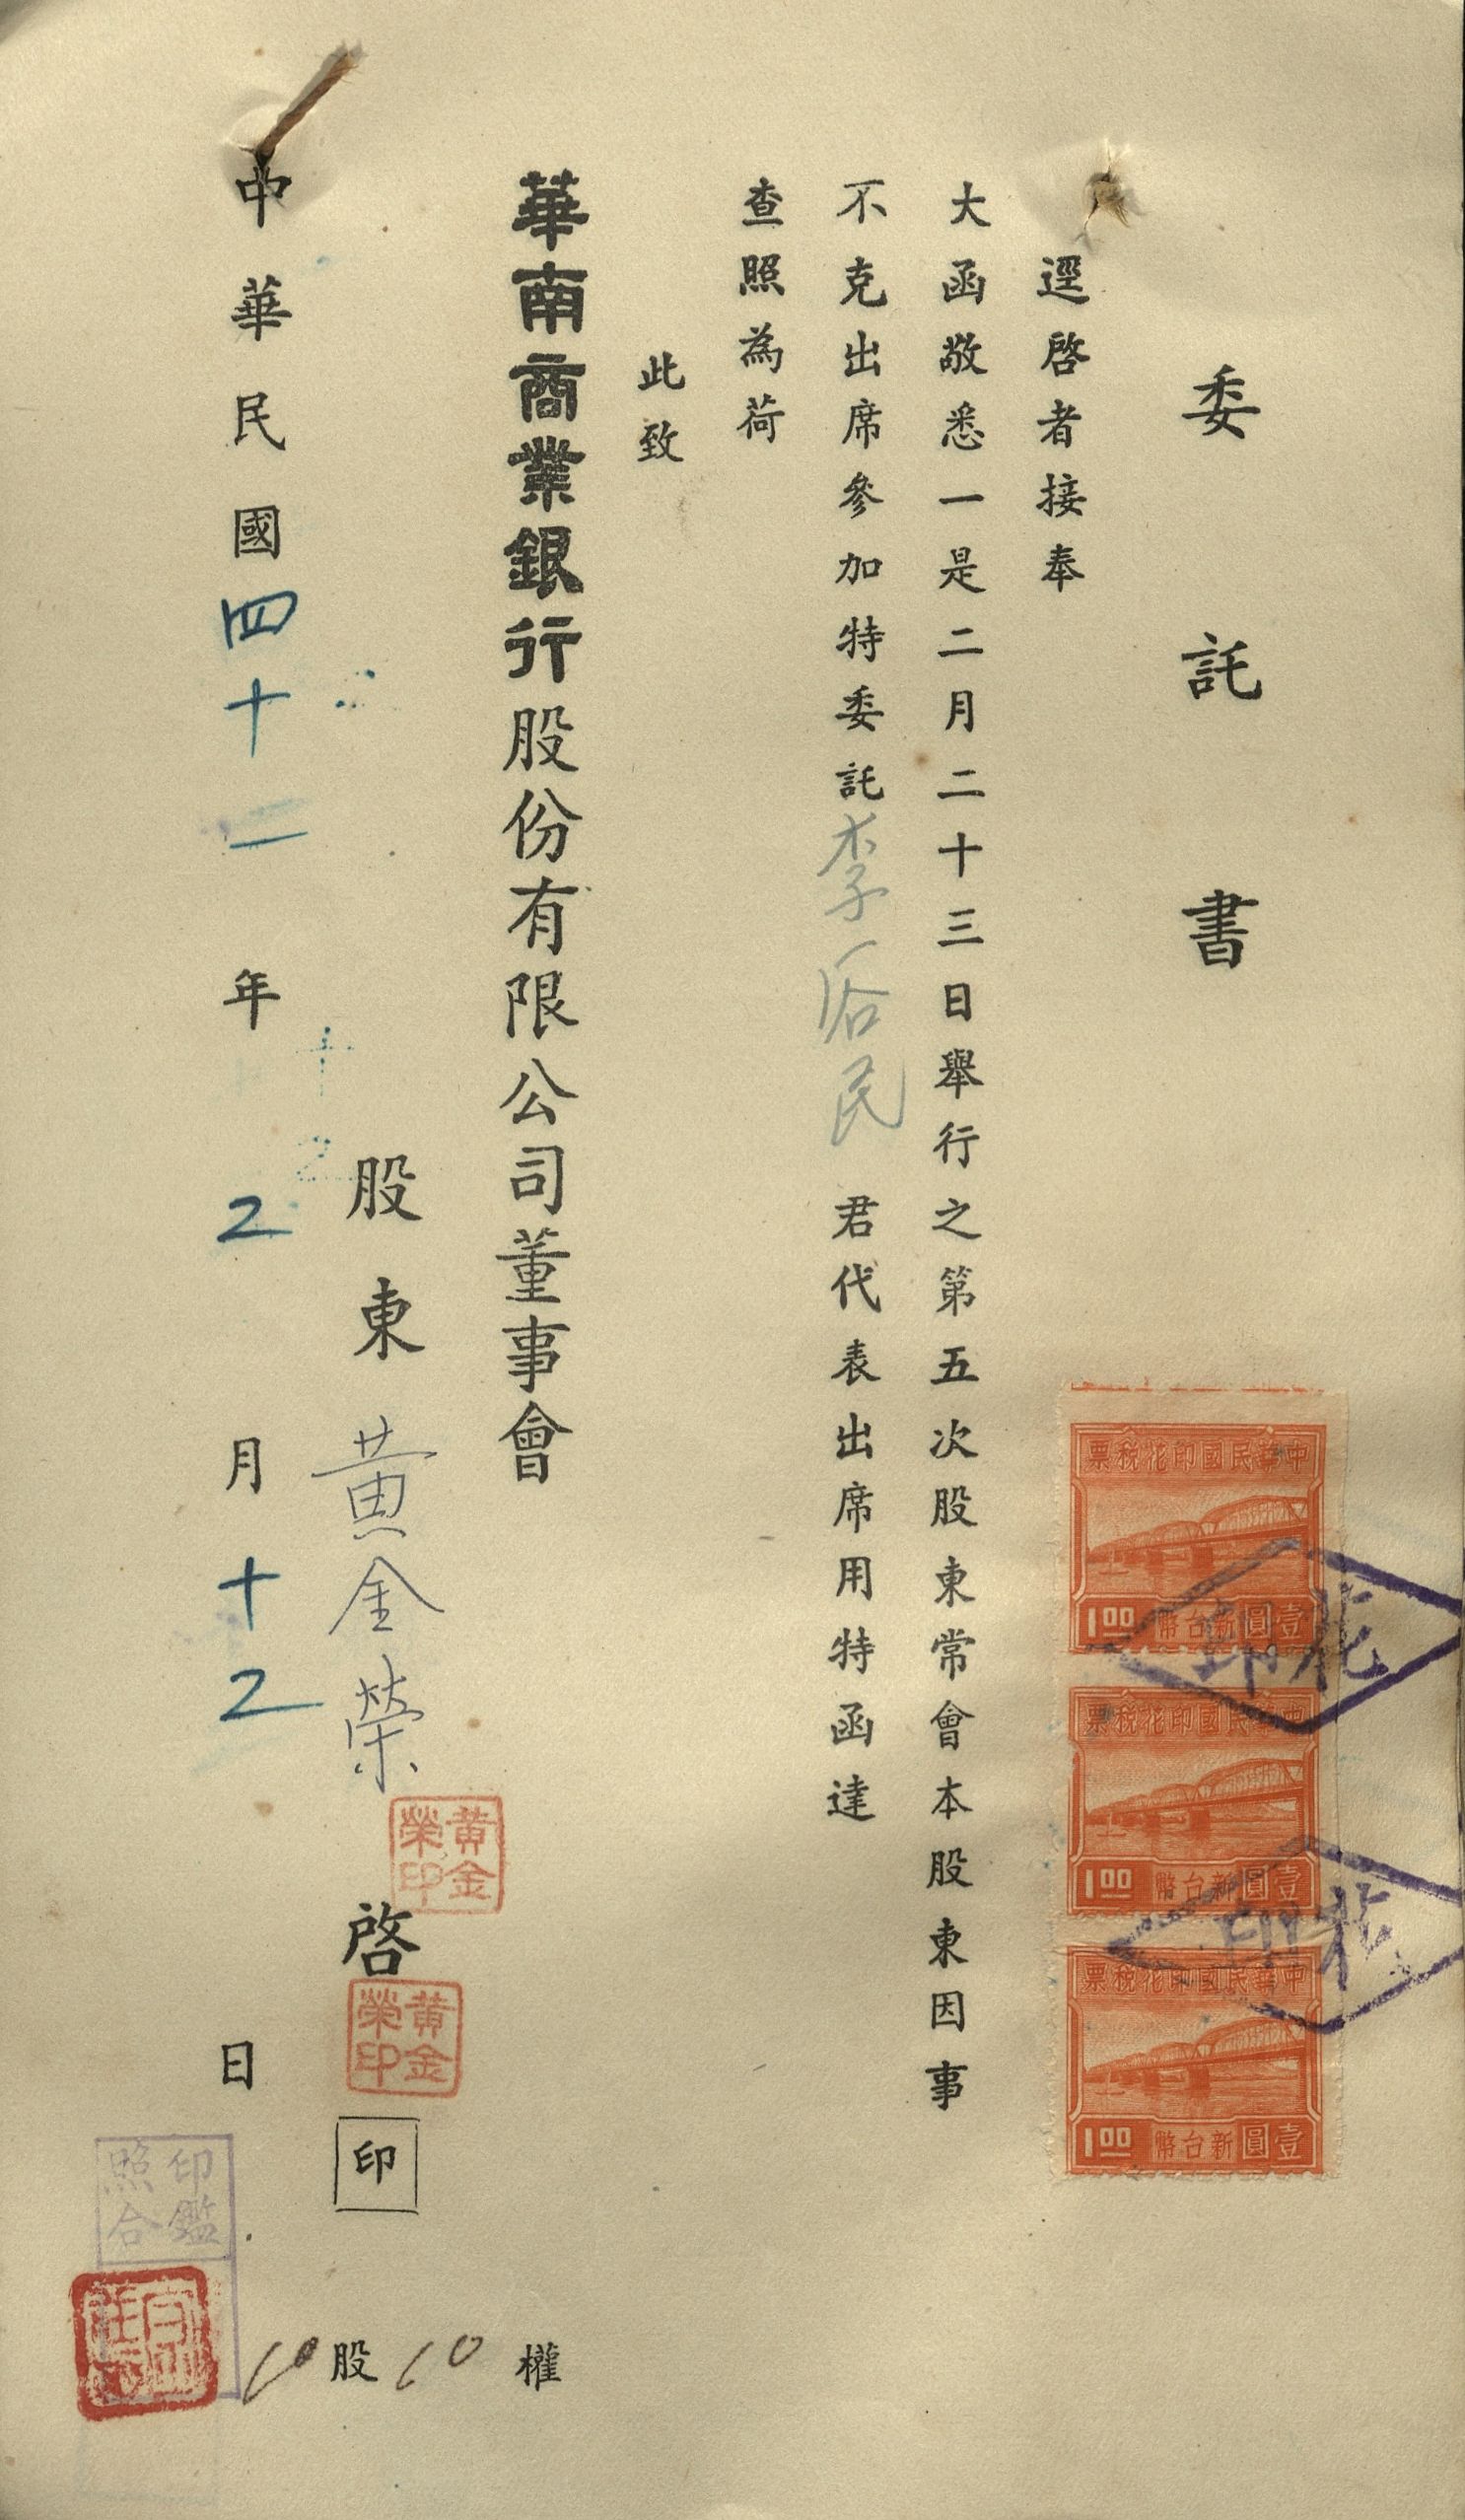 委託書
逕啓者接奉
大函敬悉一是二月二十三日舉行之第五次股東常會本股東因事
不克出席參加特委託李民君代表出席用特函達
查照為荷
此致
華南商業銀行股份有限公司董事會
股東黃金榮啓印
黃金榮印
黃金榮印
中華民國四十一年2月十2日
10股10權
印鑑照合
中華民國印花稅票
壹圓新台幣 1.00
中華民國印花稅票
壹圓新台幣 1.00
中華民國印花稅票
壹圓新台幣 1.00
花印
花印